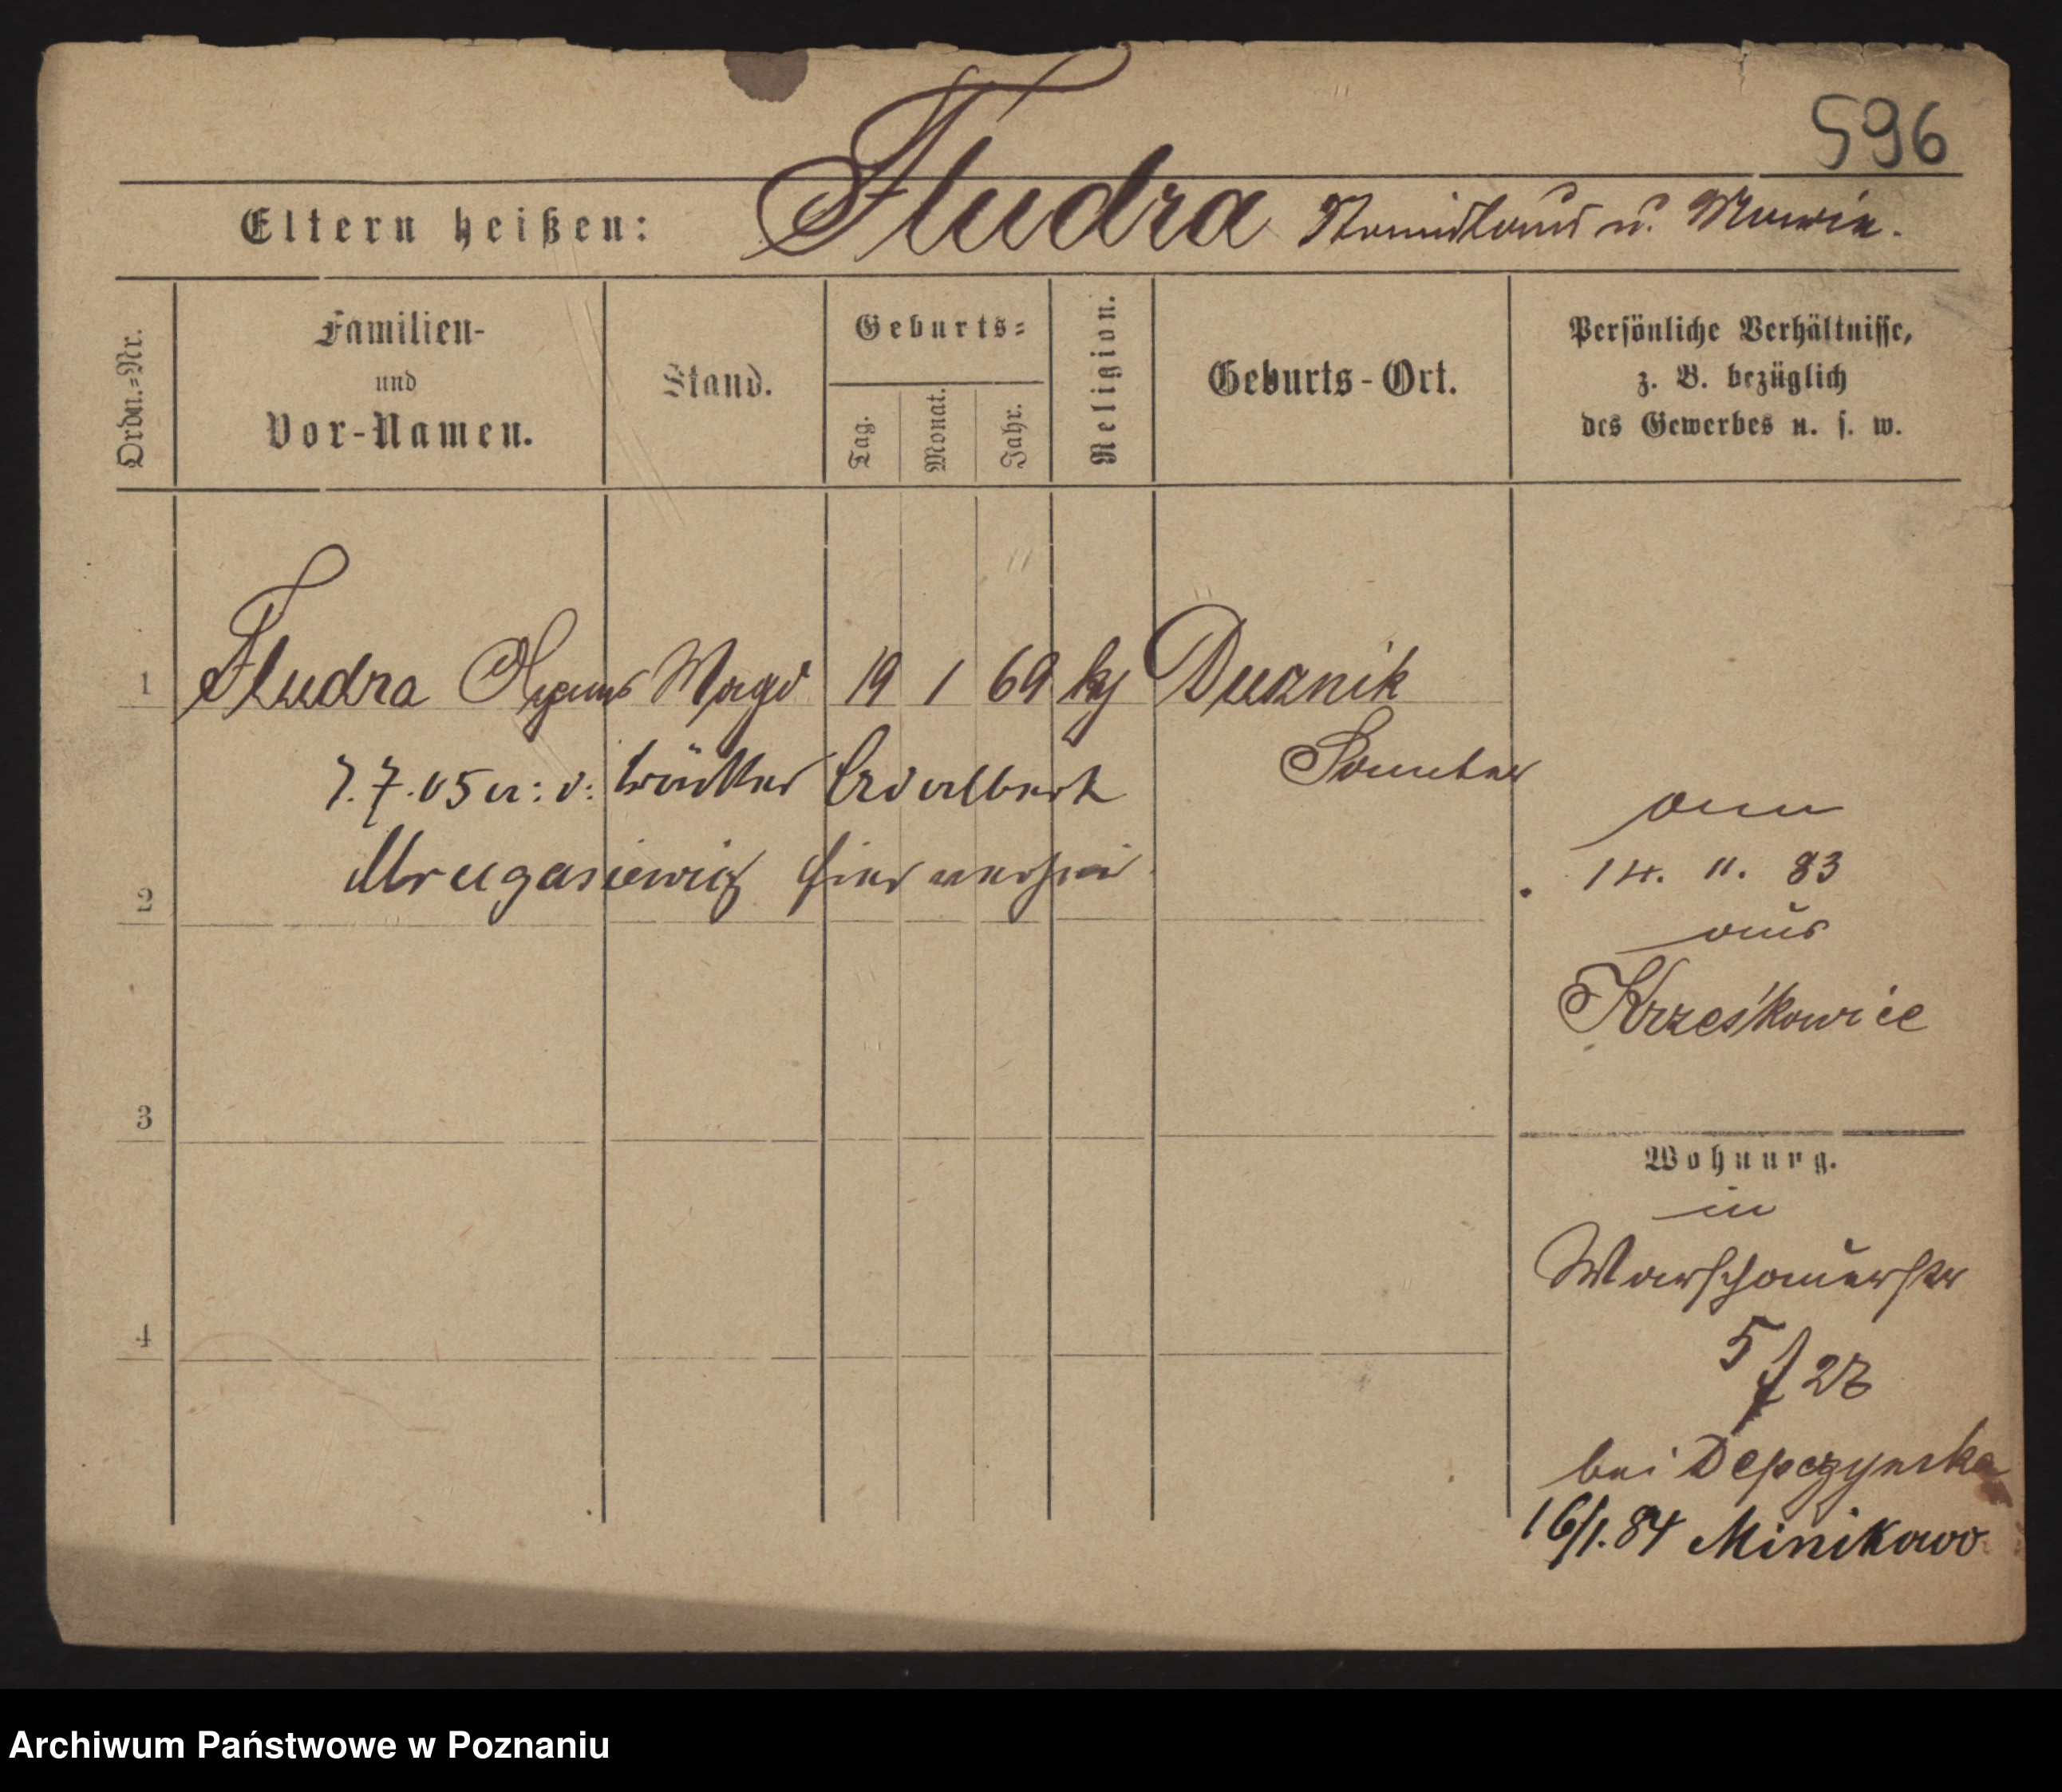 596
Eltern heißen: Fludra Stanislaus u. Maria.
Ordn.=Nr.
Familien- und Vor-Namen.
Stand.
Geburts=
Tag.
Monat.
Jahr.
Religion.
Geburts-Ort.
Persönliche Verhältnisse,
z. B. bezüglich
des Gewerbes u. s. w.
1 Fludra Agnes Magd 19 1 69 kg Dusznik
Samter
7.7.05 a: d: Arbalbert
Mrugasiewicz hier
2
am
14. 11. 83
aus
Krzeskowice
3
Wohnung.
in
Warschauerstr
5/
bei Depczynska
4
16/1.84 Minikowo
Archiwum Państwowe w Poznaniu